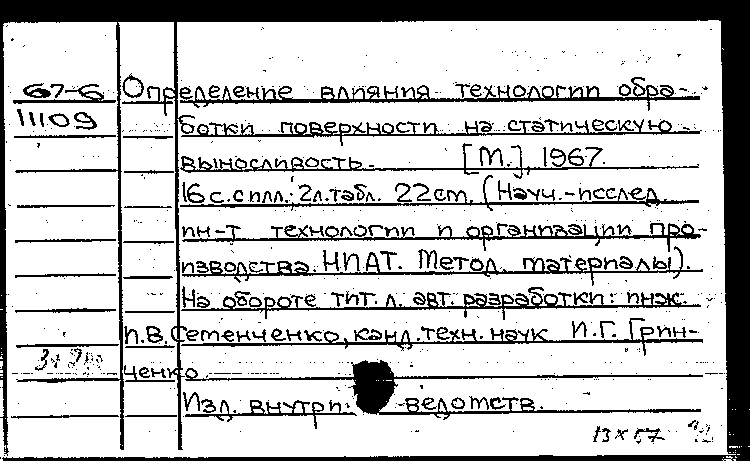 67-6 Определение влияния технологии обра-
11109 ботки поверхности на статическую
выносливость. [М.], 1967.
16 с. с илл.; 2 л. табл. 22 см. (Науч.-исслед.
ин-т технологии и организации про-
изводства. НИАТ. Метод. материалы).
На обороте тит. л. авт. разработки: инж.
П.В. Семенченко, канд. техн. наук И.Г. Грин-
ченко
Изд. внутри- ведомств.
13 X 67